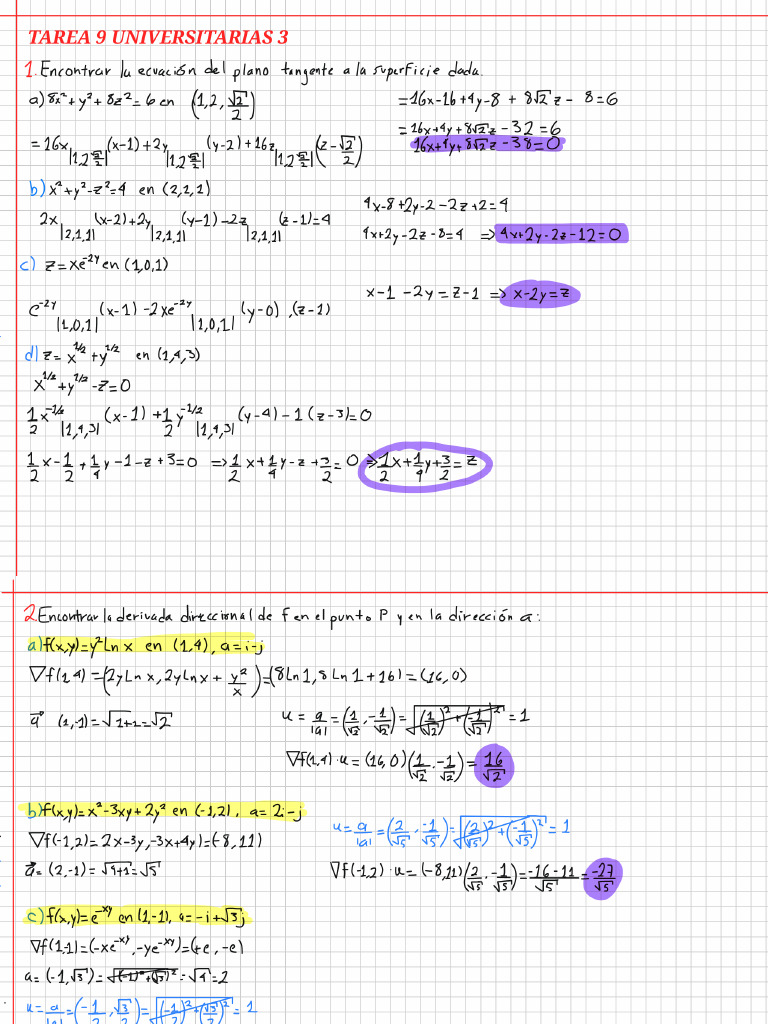 TAREA 9 UNIVERSITARIAS 3
1. Encontrar la ecuación del plano tangente a la superficie dada.
a) 8x²+y²+8z²=6 en (1,2,√2/2)
=16x|1,2,√2/2| (x-1)+2y|1,2,√2/2| (y-2)+16z|1,2,√2/2| (z-√2/2)
=16x-16+4y-8+8√2z-8=6
=16x+4y+8√2z-32=6
16x+4y+8√2z-38=0
b) x²+y²-z²=4 en (2,1,1)
2x|2,1,1| (x-2)+2y|2,1,1| (y-1)-2z|2,1,1| (z-1)=4
4x-8+2y-2-2z+2=4
4x+2y-2z-8=4 ⇒ 4x+2y-2z-12=0
c) z=xe^-2y en (1,0,1)
e^-2y|1,0,1| (x-1)-2xe^-2y|1,0,1| (y-0),(z-1)
x-1-2y=z-1 ⇒ x-2y=z
d) z=x^1/2+y^1/2 en (1,4,3)
x^1/2+y^1/2-z=0
1/2x^-1/2|1,4,3| (x-1)+1/2y^-1/2|1,4,3| (y-4)-1(z-3)=0
1/2x-1/2+1/4y-1-z+3=0 ⇒ 1/2x+1/4y-z+3/2=0 ⇒ 1/2x+1/4y+3/2=z
2. Encontrar la derivada direccional de f en el punto P y en la dirección a:
a) f(x,y)=y²Ln x en (1,4), a=i-j
∇f(1,4)=(2yLnx,2yLnx+y²/x)=(8Ln1,8Ln1+16)=(16,0)
a⃗ (1,-1)=√1+1=√2
u=a/|a|=(1/√2,-1/√2)=√(1/√2)²+(-1/√2)²=1
∇f(1,4)·u=(16,0)(1/√2,-1/√2)=16/√2
b) f(x,y)=x²-3xy+2y² en (-1,2), a=2i-j
∇f(-1,2)=2x-3y,-3x+4y)=(-8,11)
a⃗=(2,-1)=√4+1=√5
u=a/|a|=(2/√5,-1/√5)=√(2/√5)²+(-1/√5)²=1
∇f(-1,2)·u=(-8,11)(2/√5,-1/√5)=-16-11/√5=-27/√5
c) f(x,y)=e^-xy en (1,-1), a=-i+√3j
∇f(1,-1)=(-xe^-xy,-ye^-xy)=(+e,-e)
a=(-1,√3)=√(-1)²+(√3)²=√4=2
u=a/|a|=(-1/2,√3/2)=√(-1/2)²+(√3/2)²=1